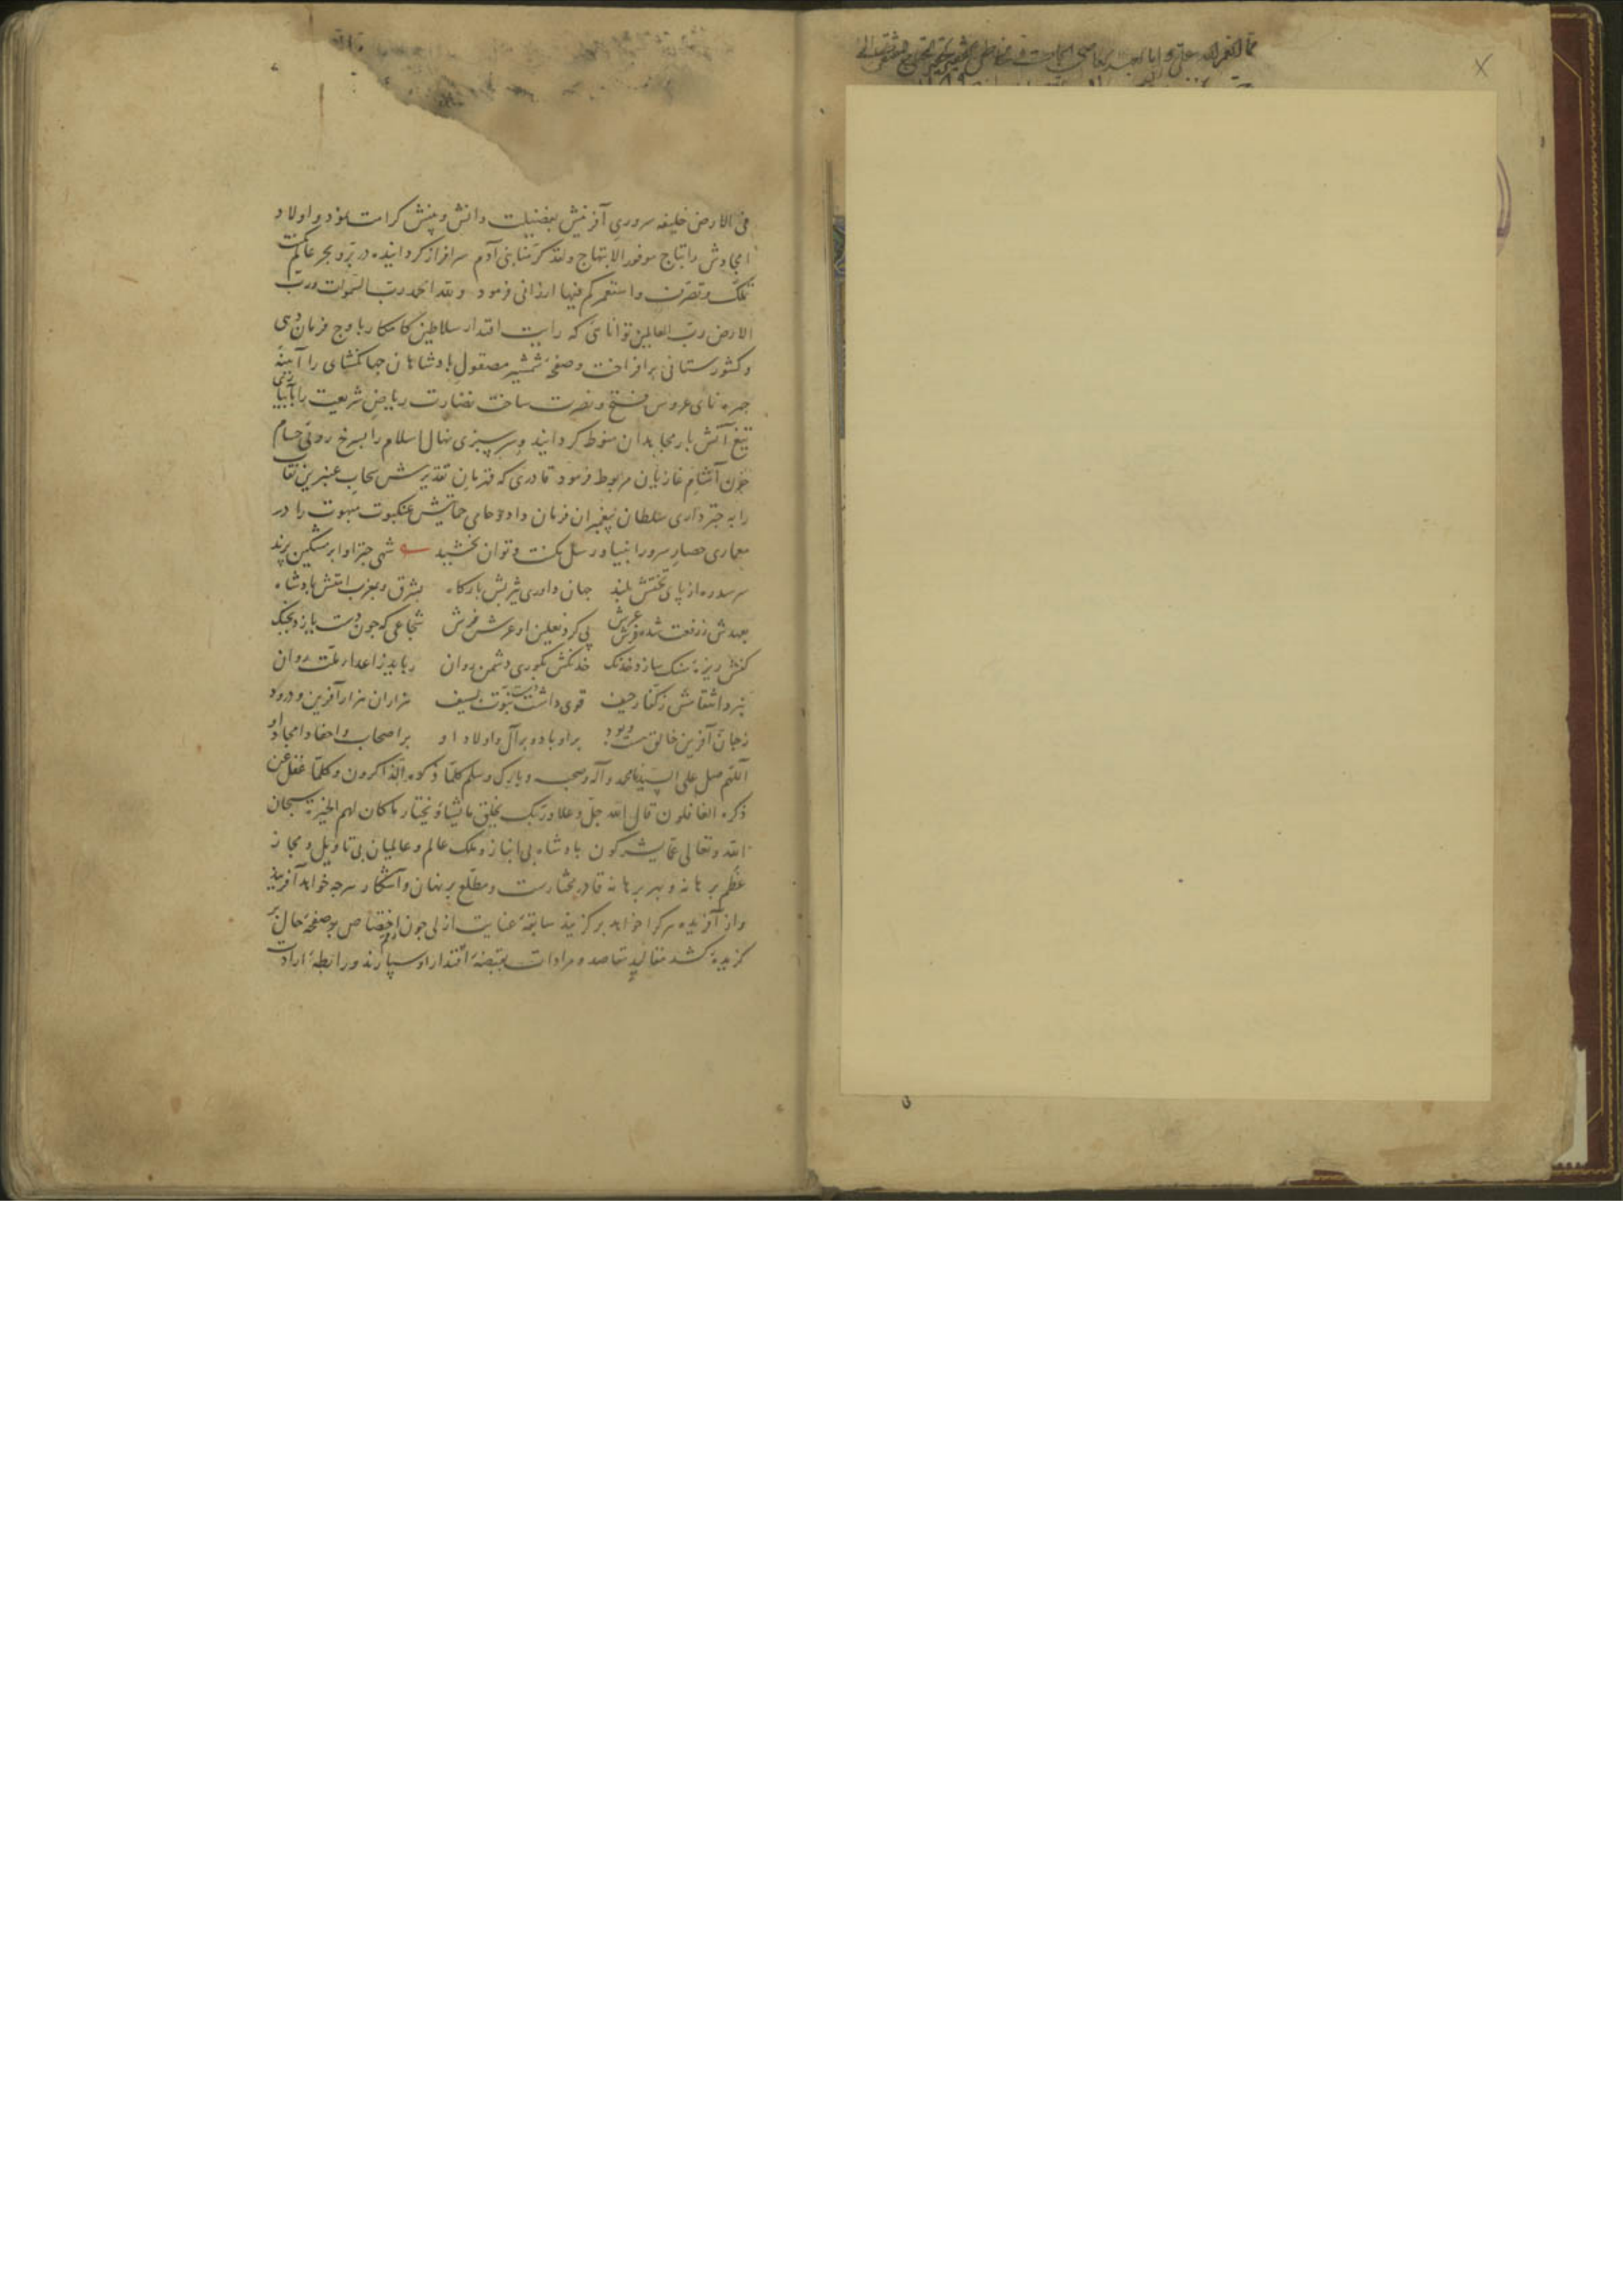 مما انعم الله علی و انا العبد
فی الارض خلیفه سروری آفرینش بفضیلت دانش و بینش کرامت نمود و اولاد
امجادش را بتاج موفور الابتهاج ولقد کرّمنا بنی آدم سرافراز کردانیده در برّ و بحر عالم مکنت
تملّک و تصرّف و استعمرکم فیها ارزانی فرمود و لله الحمد ربّ السّموات و ربّ
الارض ربّ العالمین توانایی که رایت اقتدار سلاطین کامکار باوج فرمان دهی
و کشورستانی برافراخت و صفحهٔ شمشیر مصقول پادشاهان جهانکشای را آینهٔ
چهره نمای عروس فتح و نصرت ساخت نضارت ریاض شریعت را بآبیاری
تیغ آتش بار مجاهدان منوط کردانید و سرسبزی نهال اسلام را بسرخ رویی حسام
خون آشام غازیان مربوط فرمود قادری که قهرمان تقدیرش سحاب عنبرین نقاب
را به چترداری سلطان پیغمبران فرمان داد و حامی حمایتش عنکبوت مبهوت را در
معماری حصار سرور انبیا و رسل مکنت و توان بخشید شهی چتر او ابر مشکین پرند
سر سدره از پای تختش بلند جهان داوری یثربش بارکاه بشرق و بغرب امتش پادشاه
بعهدش ز رفعت شده فرش عرش پی کرد نعلین او عرش فرش شجاعی که چون دست یازد بجنک
کفش ریزهٔ سنک سازد خدنک خدنکش بکوری دشمن روان رباید ز اعدای ملّت روان
نبرد انتقامش ز کفار حیف قوی داشت دست نبوّت بسیف هزاران هزار آفرین و درود
ز جان آفرین خالق هست و بود برو باد و بر آل و اولاد او بر اصحاب و احفاد و امجاد او
اللّهم صل علی سیّدنا محمد و آله و صحبه و بارک و سلم کلّما ذکره الذّاکرون و کلّما غفل عن
ذکره الغافلون قال الله جلّ و علا و ربّک یخلق ما یشاء و یختار ما کان لهم الخیرة سبحان
الله و تعالی عمّا یشرکون پادشاه بی انباز و ملک عالم و عالمیان بی تاویل و مجاز
عظم برهانه و بهر برهانه قادر مختارست و مطّلع بر نهان و آشکار هرچه خواهد آفریند
و از آفریده هرکرا خواهد برکزیند سابقهٔ عنایت ازلی چون رقم اختصاص بر صفحهٔ حال
کزیدهٔ کشد مقالید مقاصد و مرادات بقبضهٔ اقتدار او سپارند و رابطهٔ ارادت